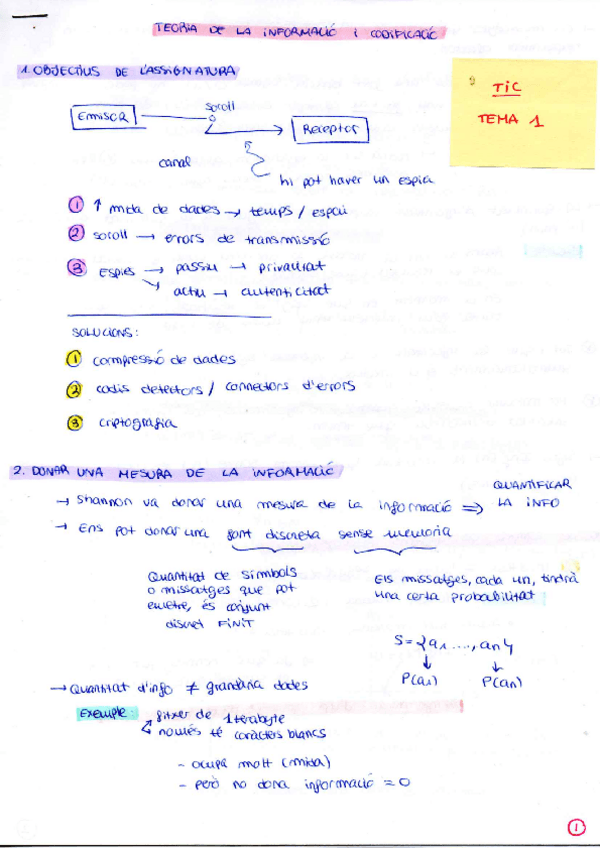 TEORIA DE LA INFORMACIÓ i CODIFICACIÓ
1. OBJECTIUS DE L'ASSIGNATURA
TIC
TEMA 1
soroll
Emisor
Receptor
canal
hi pot haver un espia
1 ↑ mida de dades → temps / espai
2 soroll → errors de transmissió
3 Espies → passiu → privacitat
↘ actiu → autenticitat
SOLUCIONS:
1 compressió de dades
2 codis detectors / correctors d'errors
3 criptografia
2. DONAR UNA MESURA DE LA INFORMACIÓ
→ Shannon va donar una mesura de la informació ⇒ QUANTIFICAR LA INFO
→ Ens pot donar una font discreta sense memòria
Quantitat de símbols
o missatges que pot
emetre, és conjunt
discret FINIT
Els missatges, cada un, tindrà
una certa probabilitat
S={a1 ...., an}
↓ ↓
P(a1) P(an)
→ Quantitat d'info ≠ grandària dades
Exemple: fitxer de 1 terabyte
només té caràcters blancs
- ocupa molt (mida)
- però no dona informació = 0
1